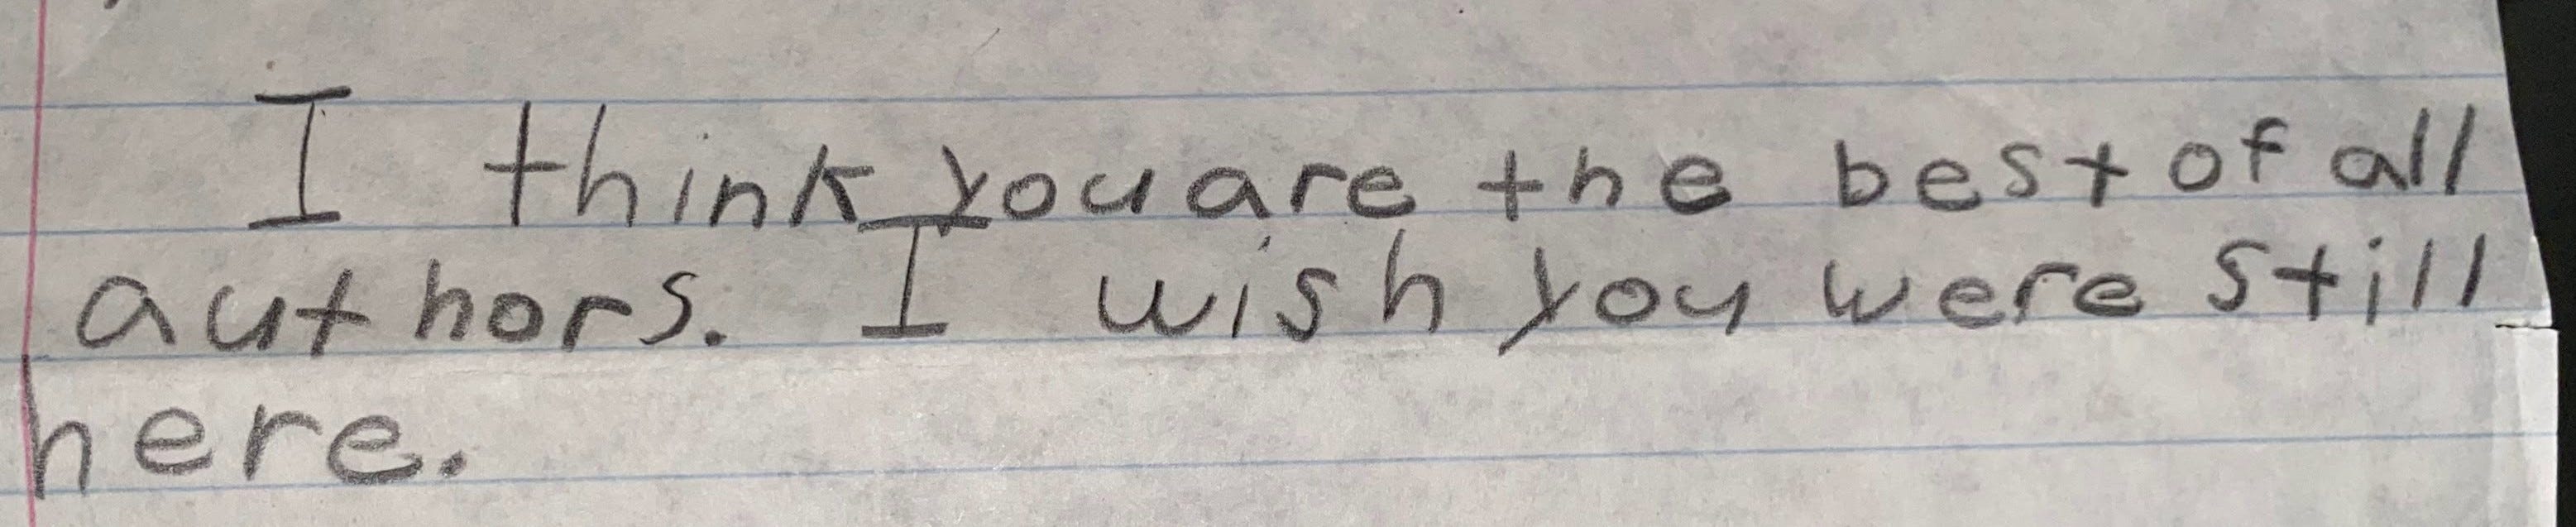 I think you are the best of all
authors. I wish you were still
here.